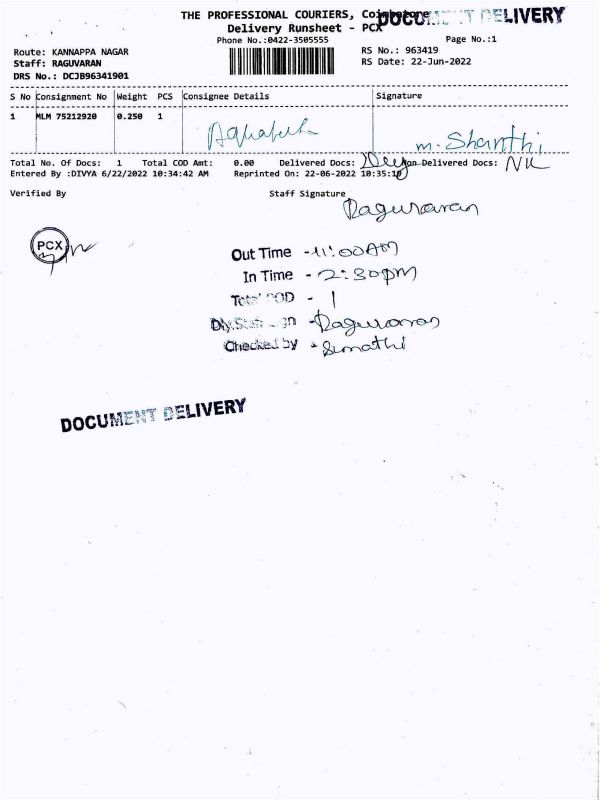 THE PROFESSIONAL COURIERS, Coimbatore
DOCUMENT DELIVERY
Delivery Runsheet - PCX
Phone No.:0422-3505555
Page No.:1
Route: KANNAPPA NAGAR
RS No.: 963419
Staff: RAGUVARAN
RS Date: 22-Jun-2022
DRS No.: DCJB96341901
S No Consignment No Weight PCS Consignee Details Signature
1 MLM 75212920 0.250 1
m. Shanthi
Total No. Of Docs: 1 Total COD Amt: 0.00 Delivered Docs: Non Delivered Docs: NIL
Entered By :DIVYA 6/22/2022 10:34:42 AM Reprinted On: 22-06-2022 10:35:19
Verified By Staff Signature
Raguvaran
PCX
Out Time - 11:00AM
In Time - 2:30pm
Total COD - 1
Dly.Staff Sign - Raguvaran
Checked by - Sumathi
DOCUMENT DELIVERY